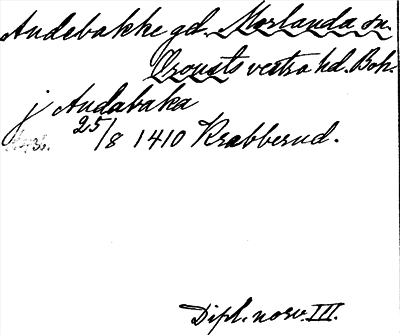 Andebakke gd. Morlanda sn.
Orousts vestra hd. Boh.
j Andabaka
25/8 1410 Krabberud.
Dipl. norv. III.